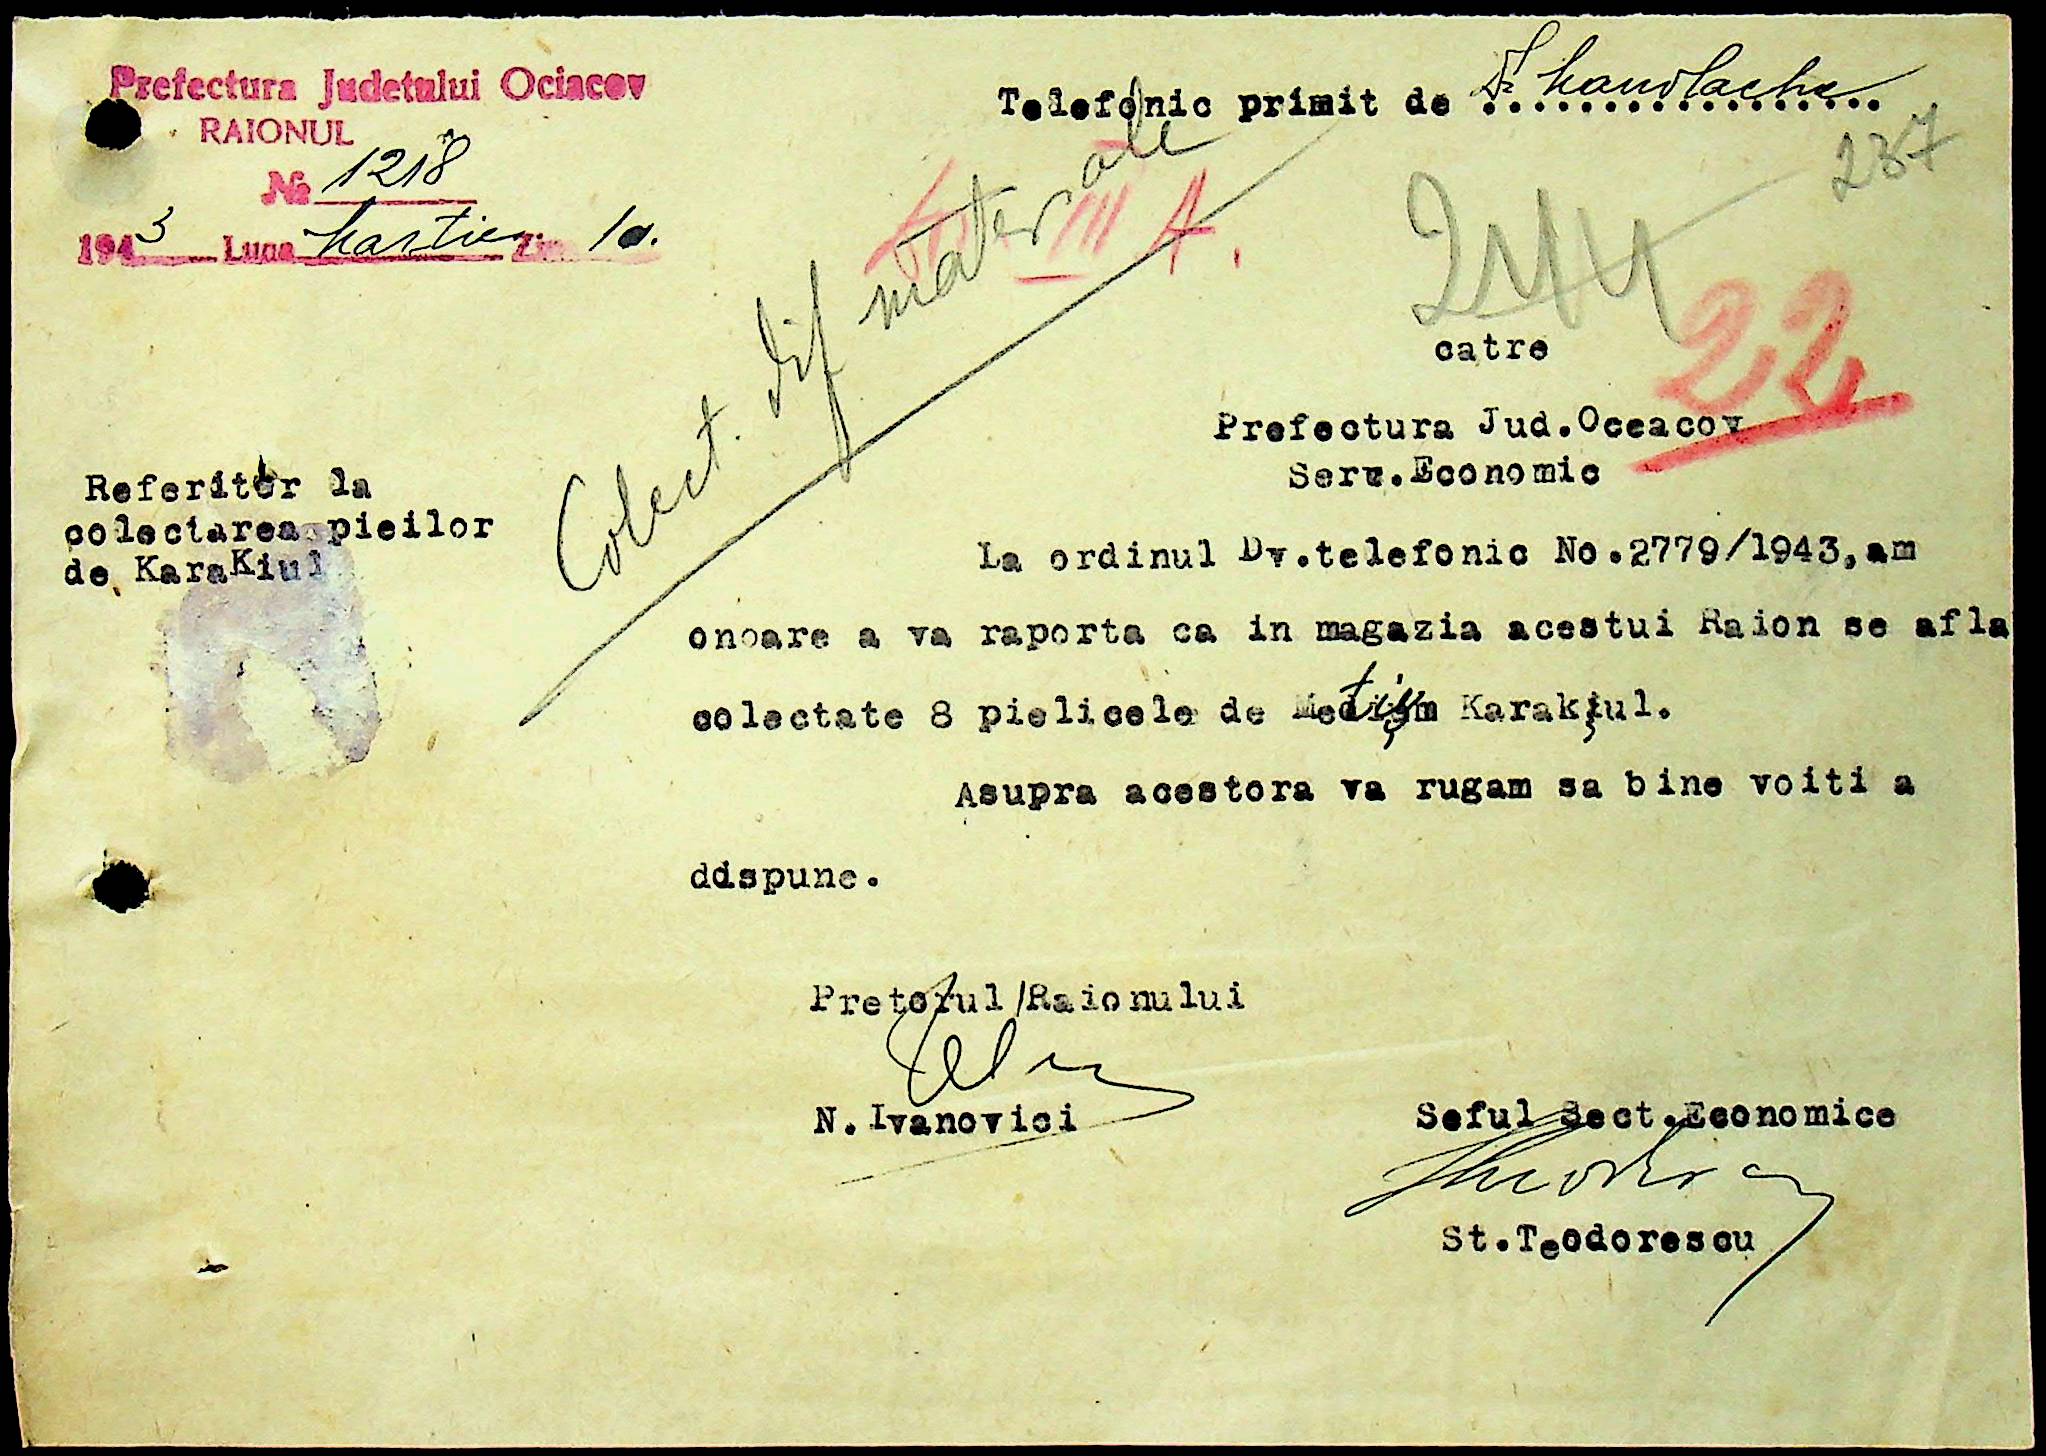 Prefectura Judetului Ociacov
RAIONUL
№ 1218
1943 Luna Martie Ziua 10.
Telefonic primit de ..................
237
Colect. dif materiale
III A.
22
catre
Prefectura Jud.Oceacov
Serv.Economic
Referitor la
colectarea pieilor
de KaraKiul
La ordinul Dv.telefonic No.2779/1943,am
onoare a va raporta ca in magazia acestui Raion se afla
colectate 8 pielicele de Metiș Karakiul.
Asupra acestora va rugam sa bine voiti a
ddspune.
Pretorul Raionului
N. Ivanovici
Seful Sect.Economice
St.Teodorescu